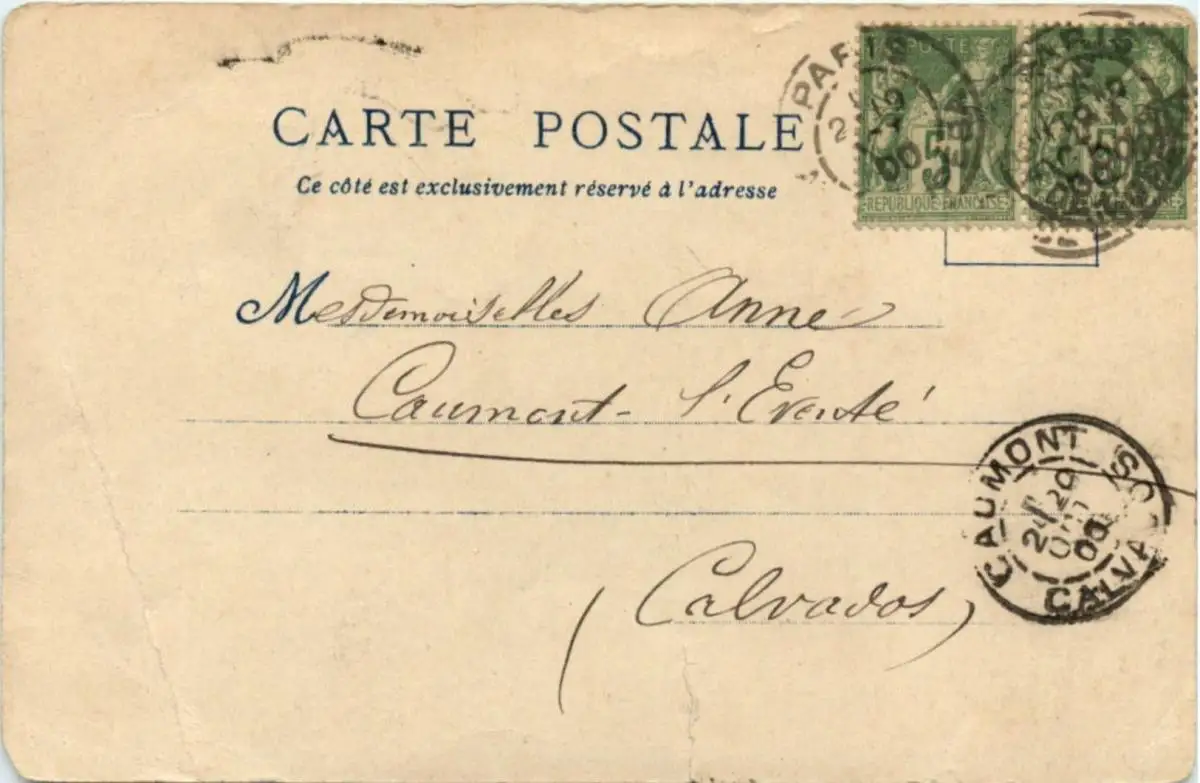 CARTE POSTALE
Ce côté est exclusivement réservé à l'adresse
POSTE
5
REPUBLIQUE FRANÇAISE
PARIS
PARIS
Mesdemoiselles Anne
Caumont l'Eventé
(Calvados)
CAUMONT
CALVA